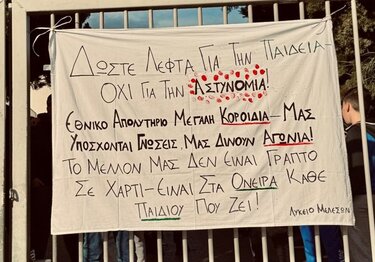 ΔΩΣΤΕ ΛΕΦΤΑ ΓΙΑ ΤΗΝ ΠΑΙΔΕΙΑ-
ΟΧΙ ΓΙΑ ΤΗΝ ΑΣΤΥΝΟΜΙΑ!
ΕΘΝΙΚΟ ΑΠΟΛΥΤΗΡΙΟ ΜΕΓΑΛΗ ΚΟΡΟΪΔΙΑ-ΜΑΣ
ΥΠΟΣΧΟΝΤΑΙ ΓΝΩΣΕΙΣ ΜΑΣ ΔΙΝΟΥΝ ΑΓΩΝΙΑ!
ΤΟ ΜΕΛΛΟΝ ΜΑΣ ΔΕΝ ΕΙΝΑΙ ΓΡΑΠΤΟ
ΣΕ ΧΑΡΤΙ-ΕΙΝΑΙ ΣΤΑ ΟΝΕΙΡΑ ΚΑΘΕ
ΠΑΙΔΙΟΥ ΠΟΥ ΖΕΙ!
ΛΥΚΕΙΟ ΜΕΛΕΣΩΝ